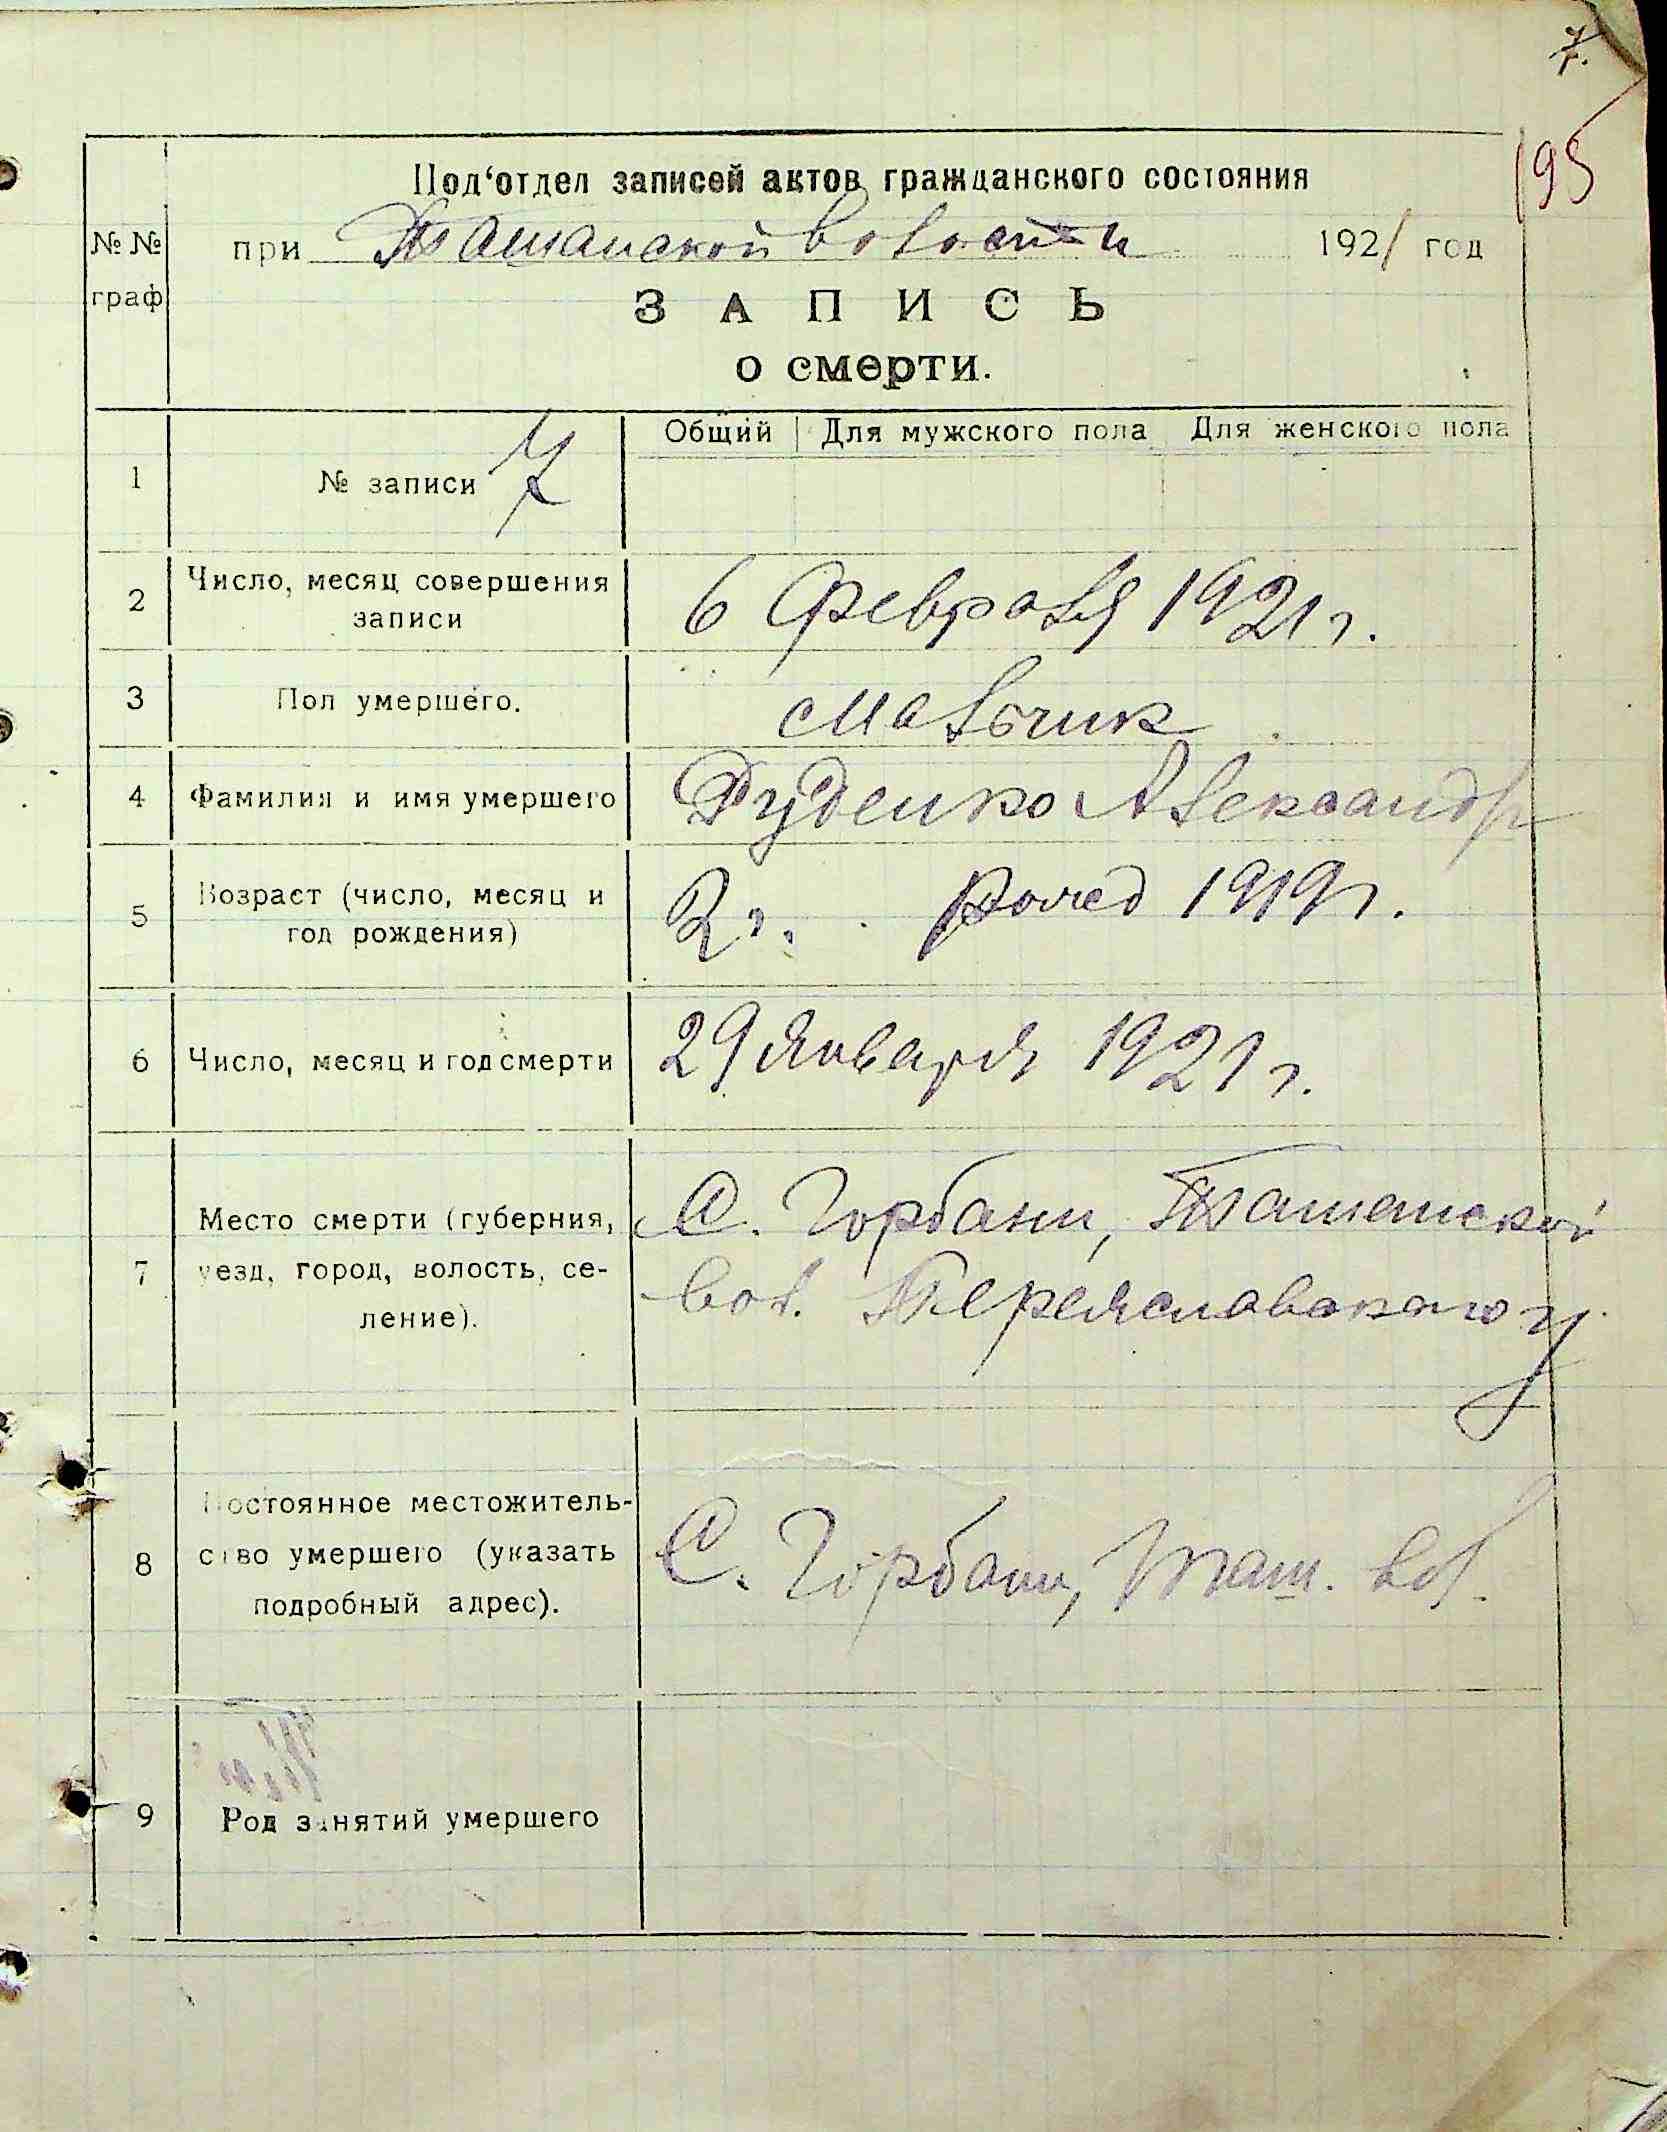 7.
195
Под‘отдел записей актов гражданского состояния
№ №
граф
при Ташанской волости 1921 год
ЗАПИСЬ
о смерти.
Общий Для мужского пола Для женского пола
1 № записи 7
2 Число, месяц совершения
записи
6 Февраля 1921 г.
3 Пол умершего.
мальчик
4 Фамилия и имя умершего
Руденко Александр
5 Возраст (число, месяц и
год рождения)
2 г. рожд 1919 г.
6 Число, месяц и год смерти
29 Января 1921 г.
7 Место смерти (губерния,
уезд, город, волость, се-
ление).
С. Горбани, Ташанской
вол. Переяславского у.
8 Постоянное местожитель-
ство умершего (указать
подробный адрес).
С. Горбани, Таш. вол.
9 Род занятий умершего